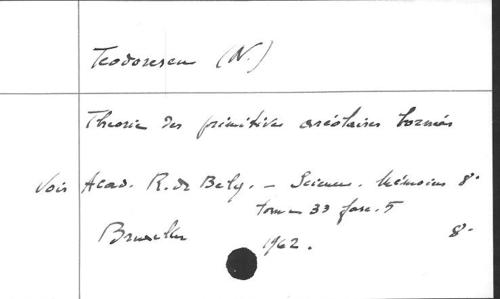 Teodorescu (N.)
Théorie des primitives aréolaires bornées
Voir Acad. R. de Belg. - Sciences. Mémoires 8°
tome 33 fasc. 5
Bruxelles 1962. 8°